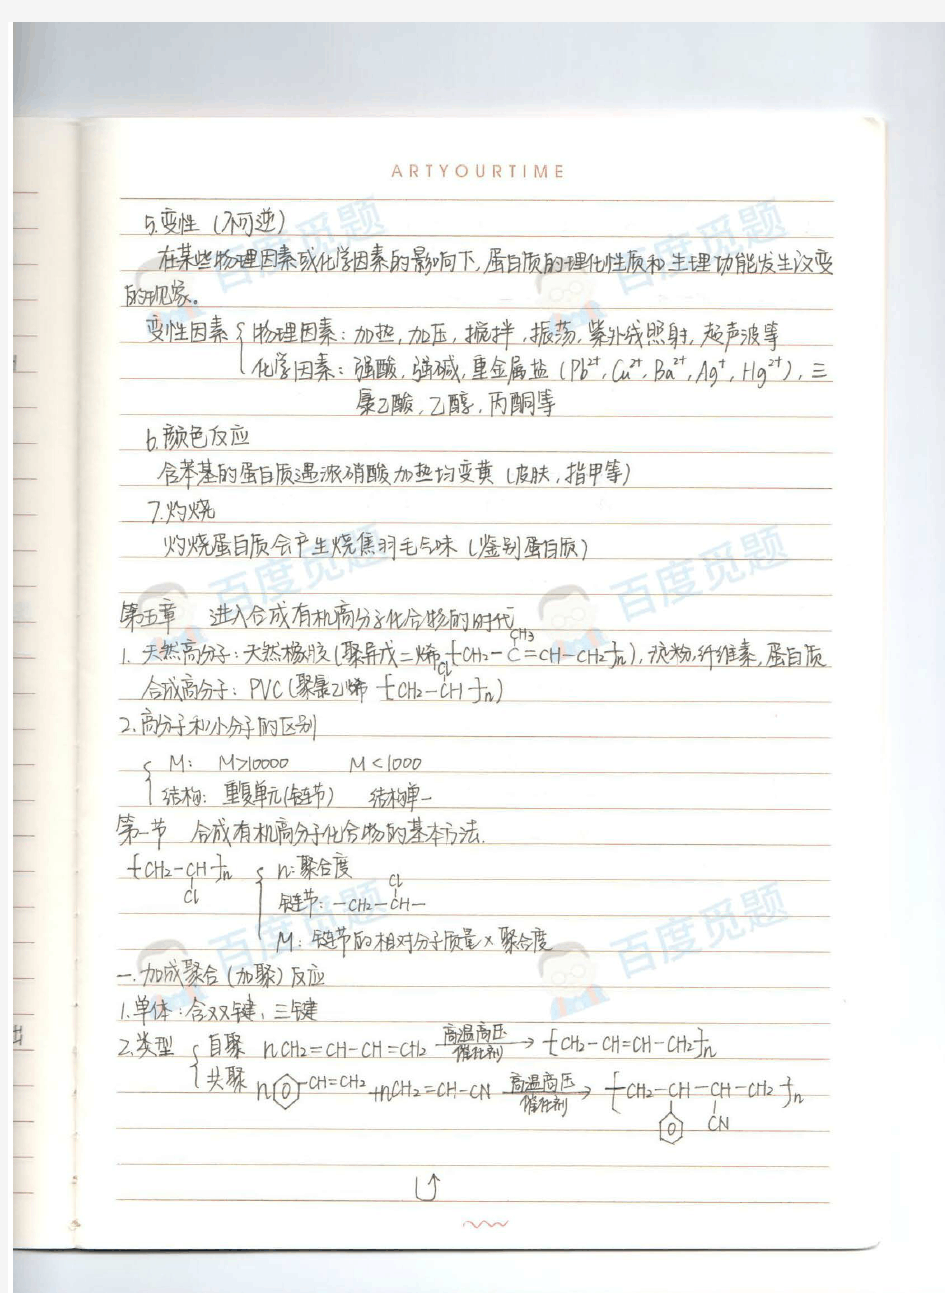 ARTYOURTIME
5.变性(不可逆)
在某些物理因素或化学因素的影响下,蛋白质的理化性质和生理功能发生改变
的现象。
变性因素{物理因素:加热,加压,搅拌,振荡,紫外线照射,超声波等
化学因素:强酸,强碱,重金属盐(Pb²⁺,Cu²⁺,Ba²⁺,Ag⁺,Hg²⁺),三
氯乙酸,乙醇,丙酮等
6.颜色反应
含苯基的蛋白质遇浓硝酸加热均变黄(皮肤,指甲等)
7.灼烧
灼烧蛋白质会产生烧焦羽毛气味(鉴别蛋白质)
第五章 进入合成有机高分子化合物的时代
CH₃
1.天然高分子:天然橡胶(聚异戊二烯 -[CH₂-C=CH-CH₂-]n),淀粉,纤维素,蛋白质
Cl
合成高分子:PVC(聚氯乙烯 -[CH₂-CH-]n)
2.高分子和小分子的区别
{M: M>10000 M<1000
结构:重复单元(链节) 结构单一
第一节 合成有机高分子化合物的基本方法.
-[CH₂-CH-]n {n:聚合度
Cl
Cl
链节:-CH₂-CH-
M:链节的相对分子质量×聚合度
一.加成聚合(加聚)反应
1.单体:含双键、三键
2.类型{自聚 nCH₂=CH-CH=CH₂ 高温高压 催化剂 → -[CH₂-CH=CH-CH₂-]n
共聚 n -CH=CH₂ +nCH₂=CH-CN 高温高压 催化剂 → -[CH₂-CH-CH-CH₂-]n
CN
百度觅题
百度觅题
百度觅题
百度觅题
百度觅题
百度觅题